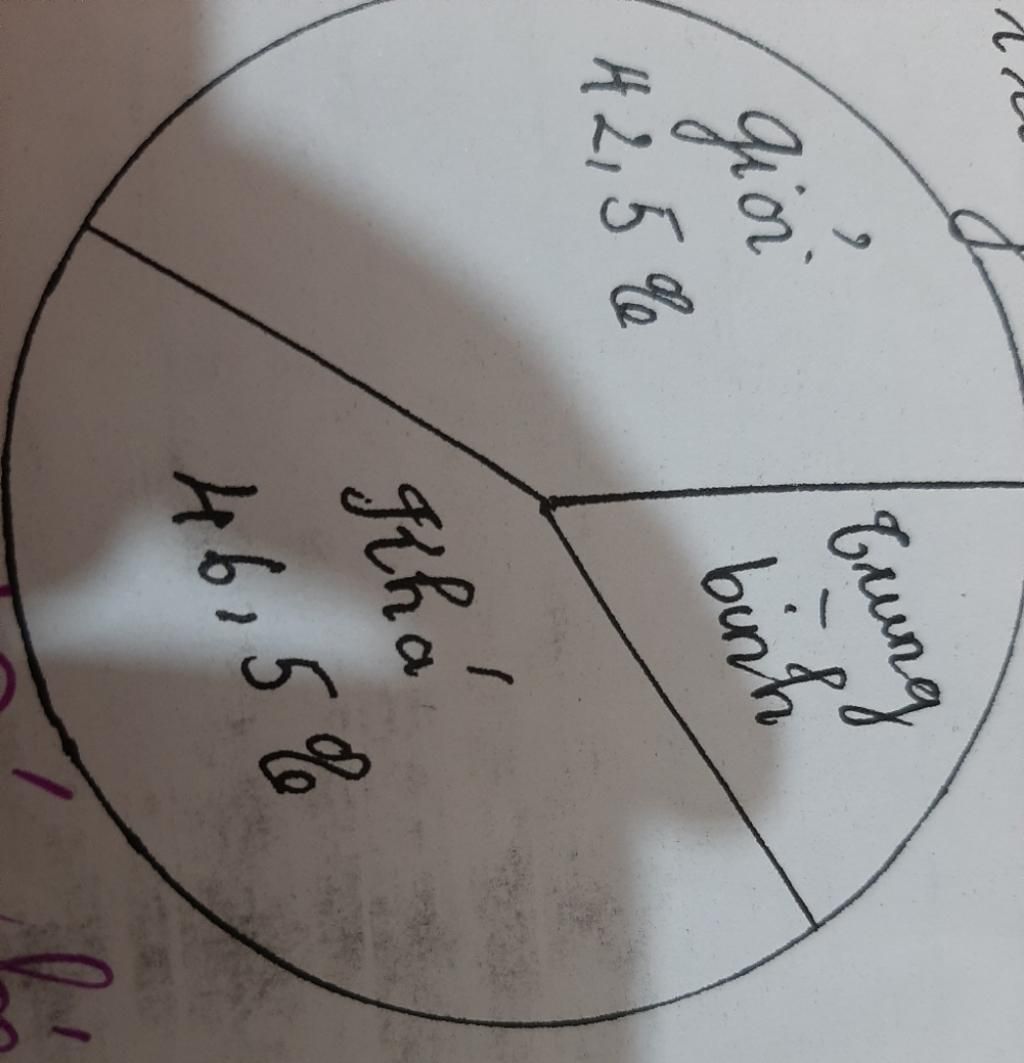 giỏi
42,5%
Trung
bình
Khá
46,5%